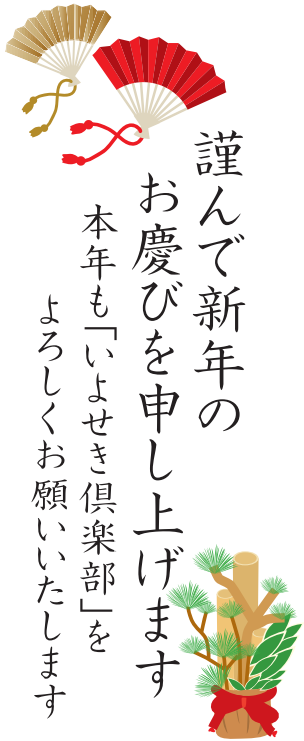 謹んで新年の
お慶びを申し上げます
本年も「いよせき倶楽部」を
よろしくお願いいたします